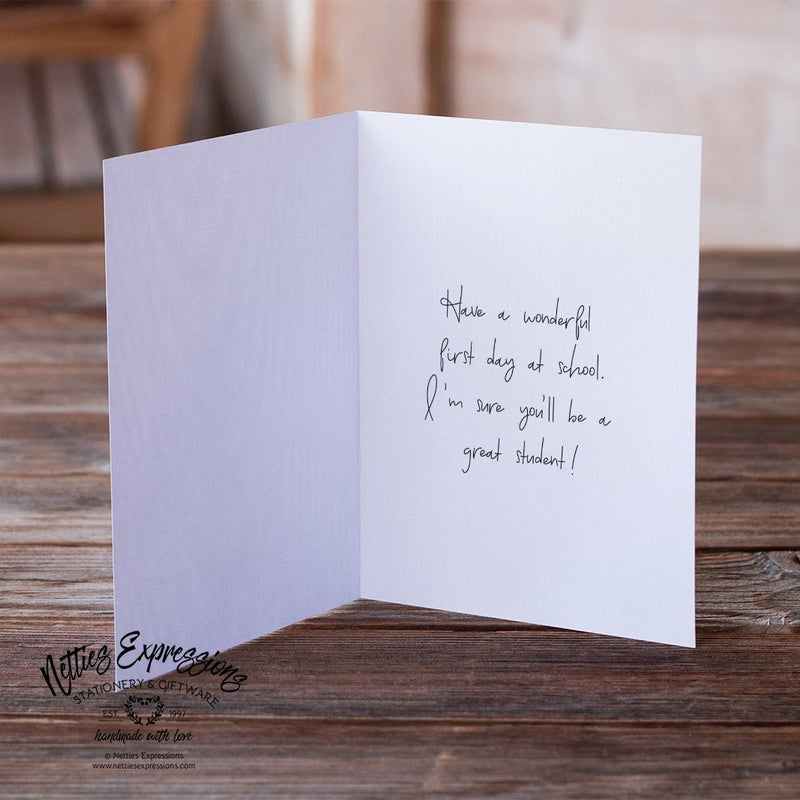 Have a wonderful
first day at school.
I'm sure you'll be a
great student!
Netties Expressions
STATIONERY & GIFTWARE
EST. 1997
handmade with love
© Netties Expressions
www.nettiesexpressions.com